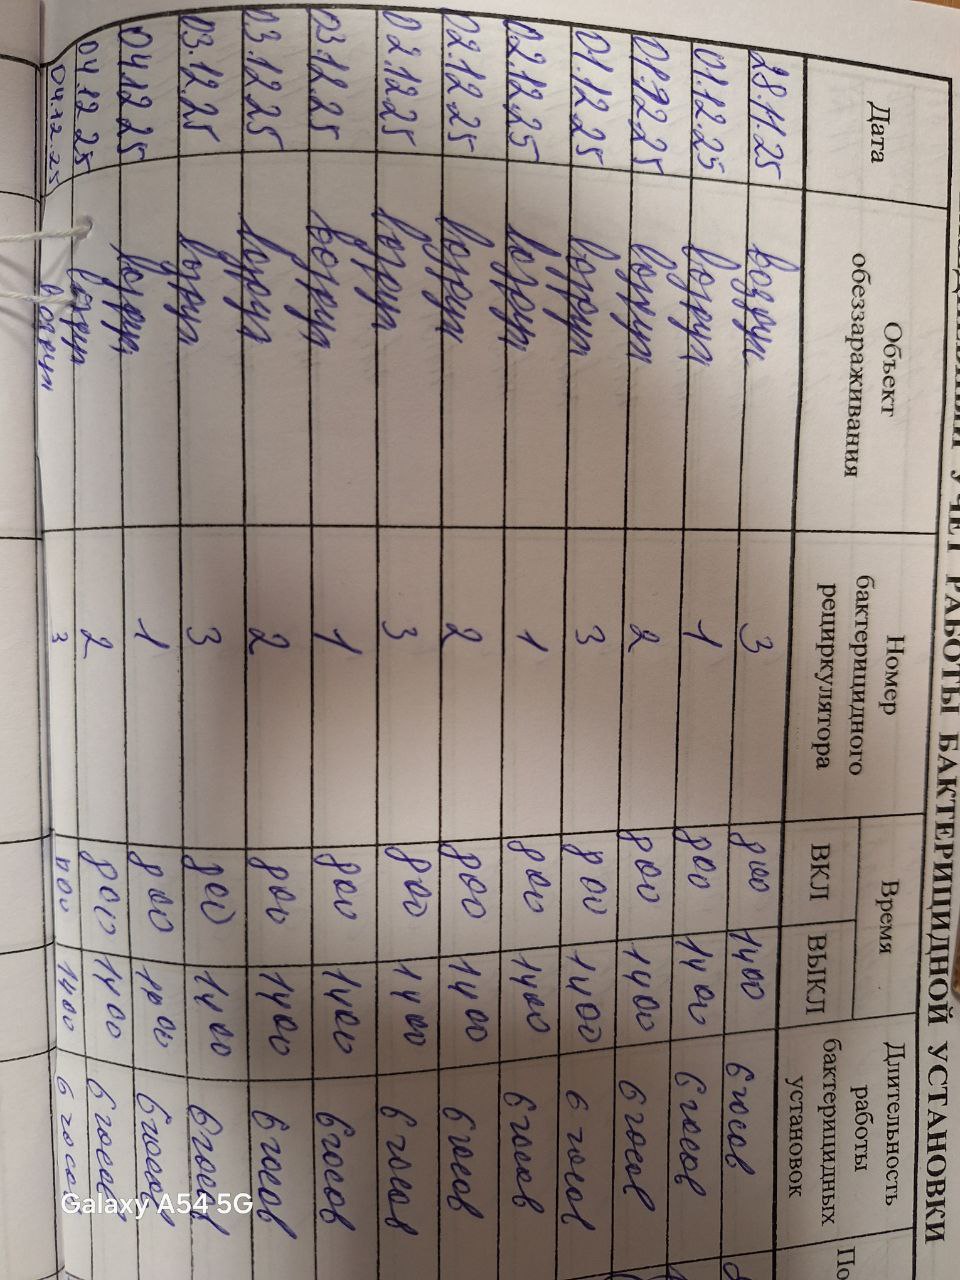 УЧЕТ РАБОТЫ БАКТЕРИЦИДНОЙ УСТАНОВКИ
Дата
Объект обеззараживания
Номер бактерицидного рециркулятора
Время
ВКЛ
ВЫКЛ
Длительность работы бактерицидных установок
28.11.25 воздух 3 800 1400 6 часов
01.12.25 воздух 1 800 1400 6 часов
01.12.25 воздух 2 800 1400 6 часов
01.12.25 воздух 3 800 1400 6 часов
02.12.25 воздух 1 800 1400 6 часов
02.12.25 воздух 2 800 1400 6 часов
02.12.25 воздух 3 800 1400 6 часов
03.12.25 воздух 1 800 1400 6 часов
03.12.25 воздух 2 800 1400 6 часов
03.12.25 воздух 3 800 1400 6 часов
04.12.25 воздух 1 800 1400 6 часов
04.12.25 воздух 2 800 1400 6 часов
04.12.25 воздух 3 800 1400 6 часов
Galaxy A54 5G